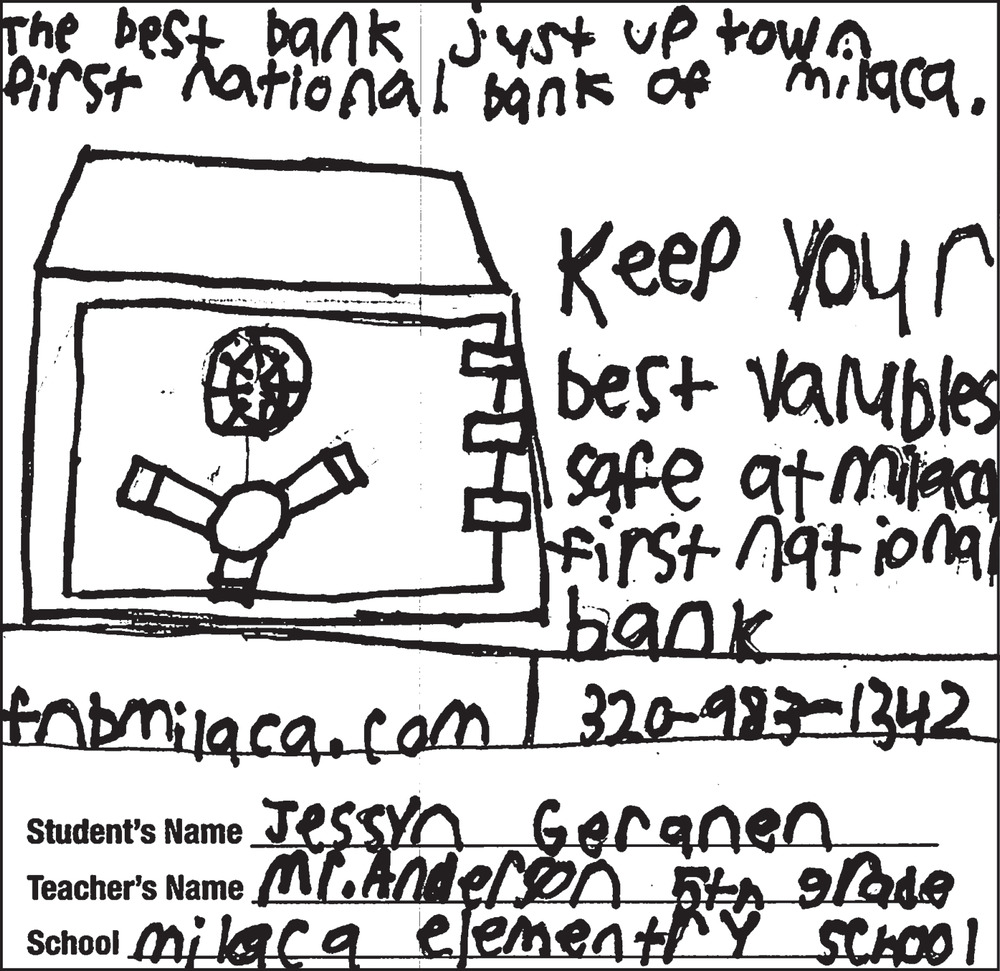 The best bank just up town
first national bank of milaca.
Keep Your
best valubles
safe at milaca
first national
bank
fnbmilaca.com
320-983-1342
Student's Name Jessyn Geranen
Teacher's Name Mr. Anderson 5th grade
School milaca elementry school